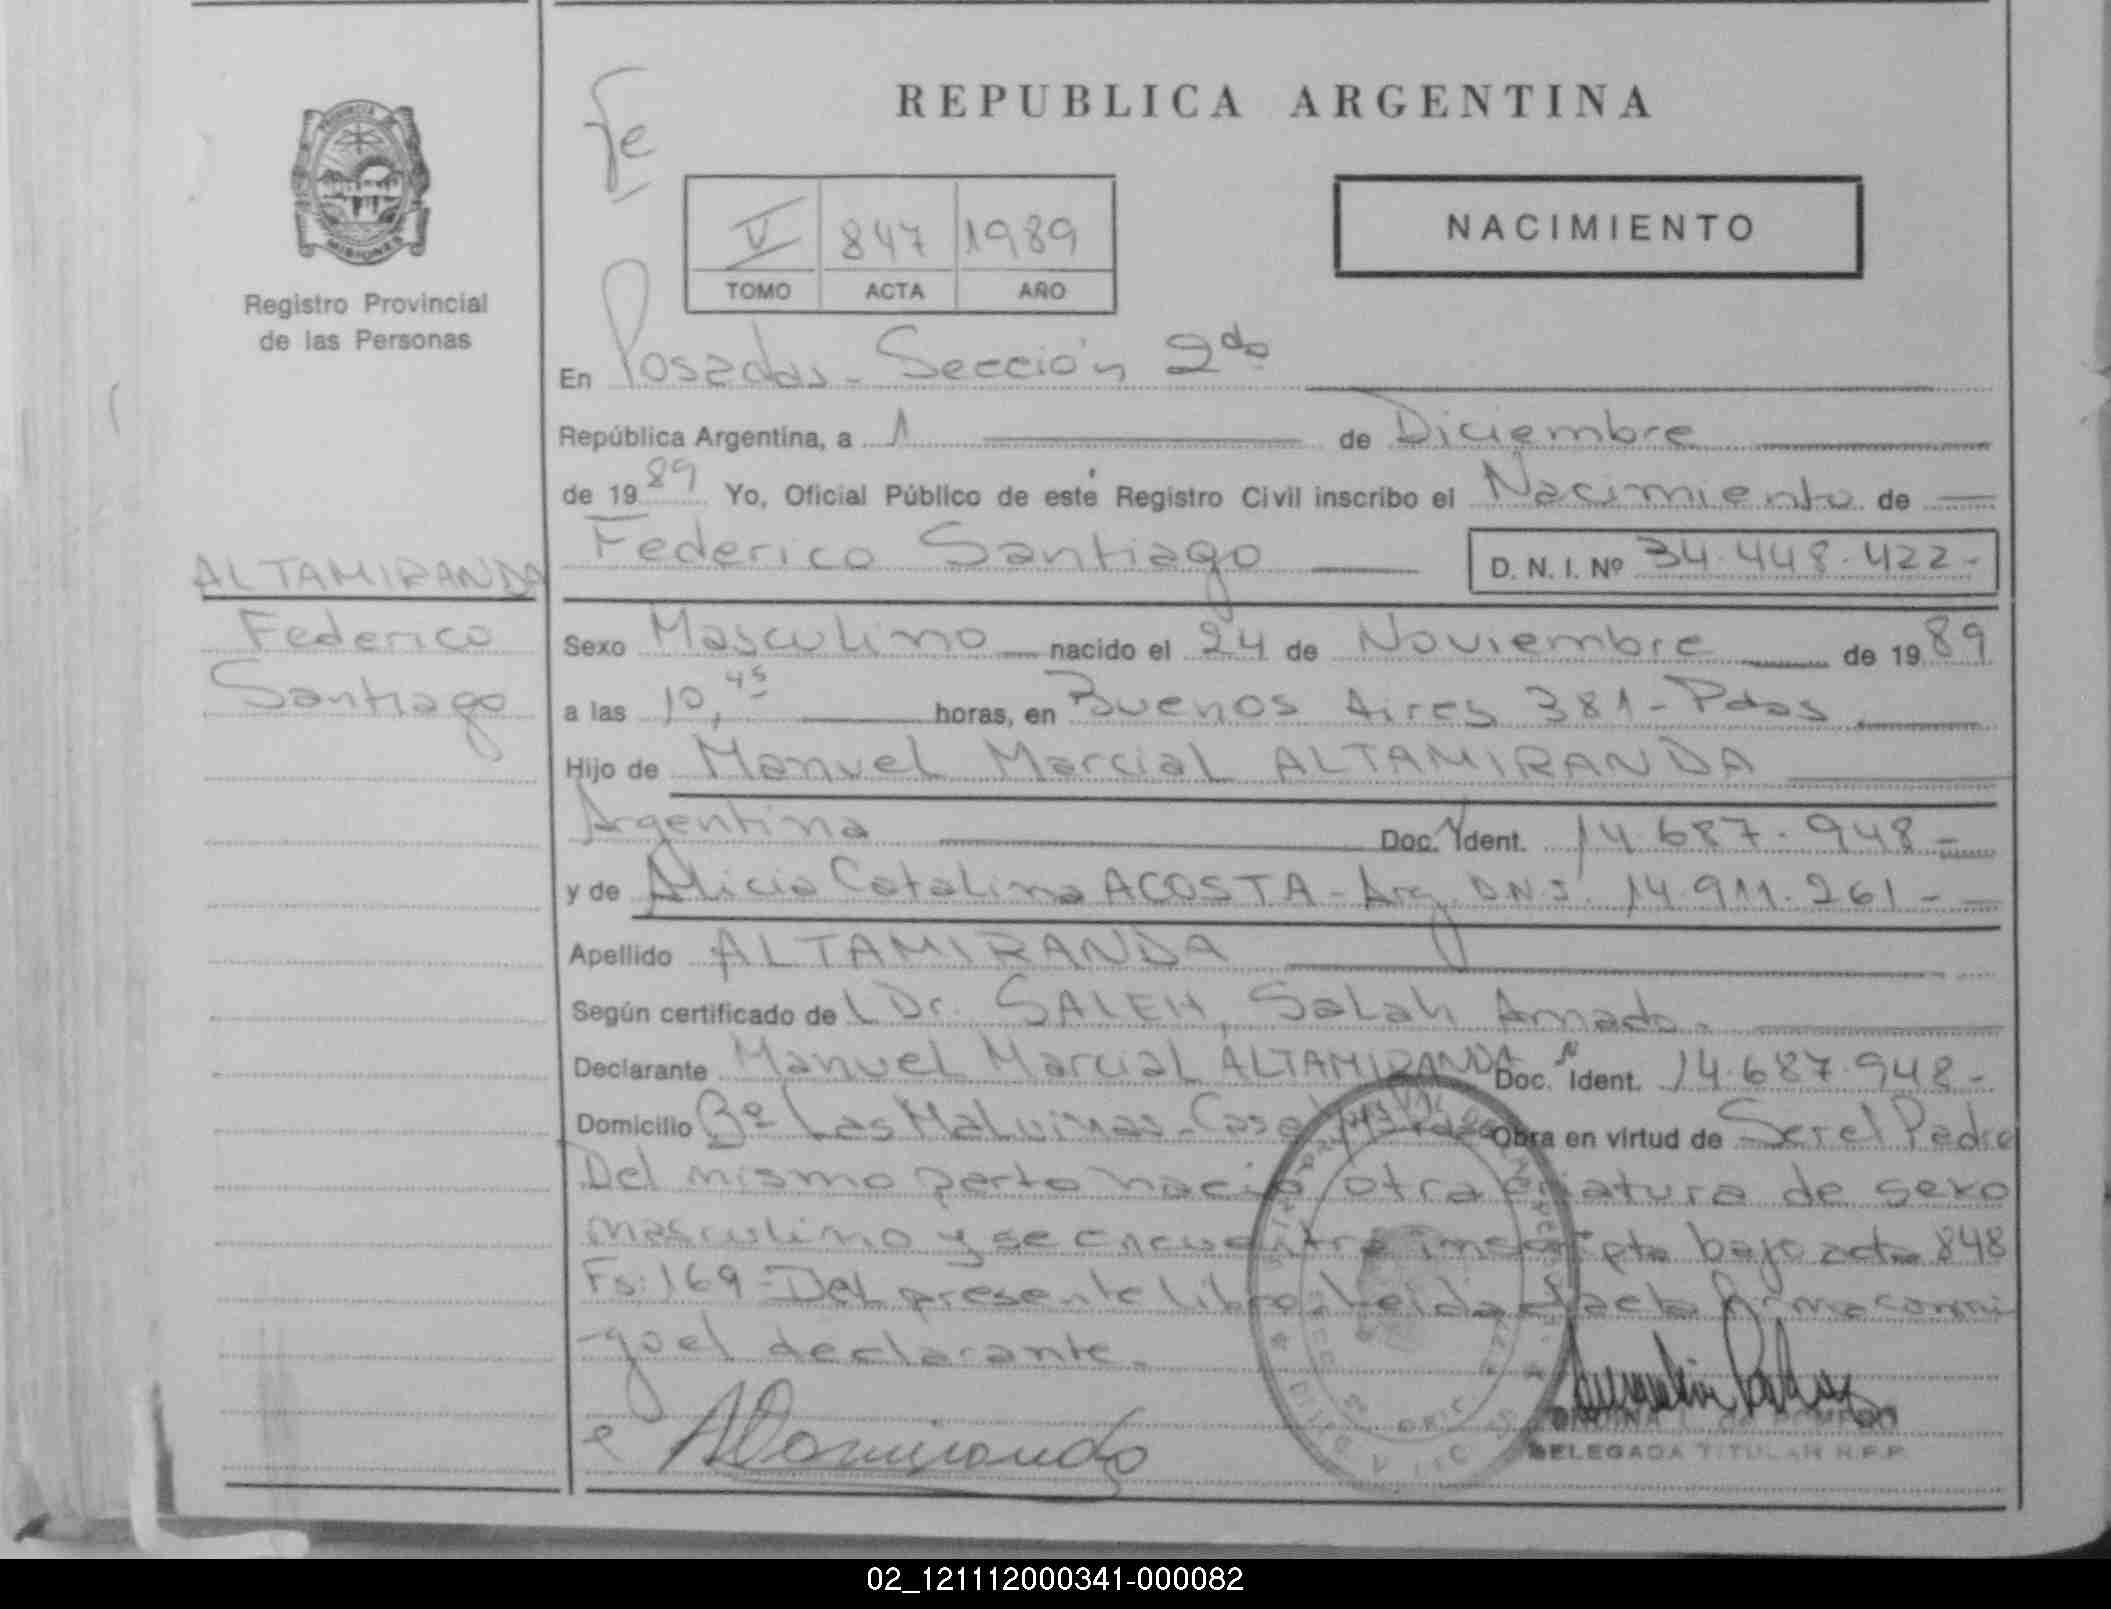 PROVINCIA
MISIONES
Registro Provincial
de las Personas
ALTAMIRANDA
Federico
Santiago
Fe
REPUBLICA ARGENTINA
V 847 1989
TOMO ACTA AÑO
NACIMIENTO
En Posadas - Sección 2da
República Argentina, a 1 de Diciembre
de 1989 Yo, Oficial Público de este Registro Civil inscribo el Nacimiento de
Federico Santiago D. N. I. Nº 34.448.422-
Sexo Masculino nacido el 24 de Noviembre de 1989
a las 10,45 horas, en Buenos Aires 381 - Pdas
Hijo de Manuel Marcial ALTAMIRANDA
Argentina Doc. Ident. 14.687.948-
y de Alicia Catalina ACOSTA - Arg. DNI. 14.911.261-
Apellido ALTAMIRANDA
Según certificado de l Dr. SALEH, Salah Amado.
Declarante Manuel Marcial ALTAMIRANDA Doc. Ident. 14.687.948-
Domicilio Bº Las Malvinas - Casa Obra en virtud de Ser el Padre
Del mismo parto nacio otra criatura de sexo
masculino y se encuentra inscripta bajo acta 848
Fs: 169 - Del presente libro. Leida el acta firma conmi
-go el declarante.
DELEGADA TITULAR R.P.P.
02_121112000341-000082